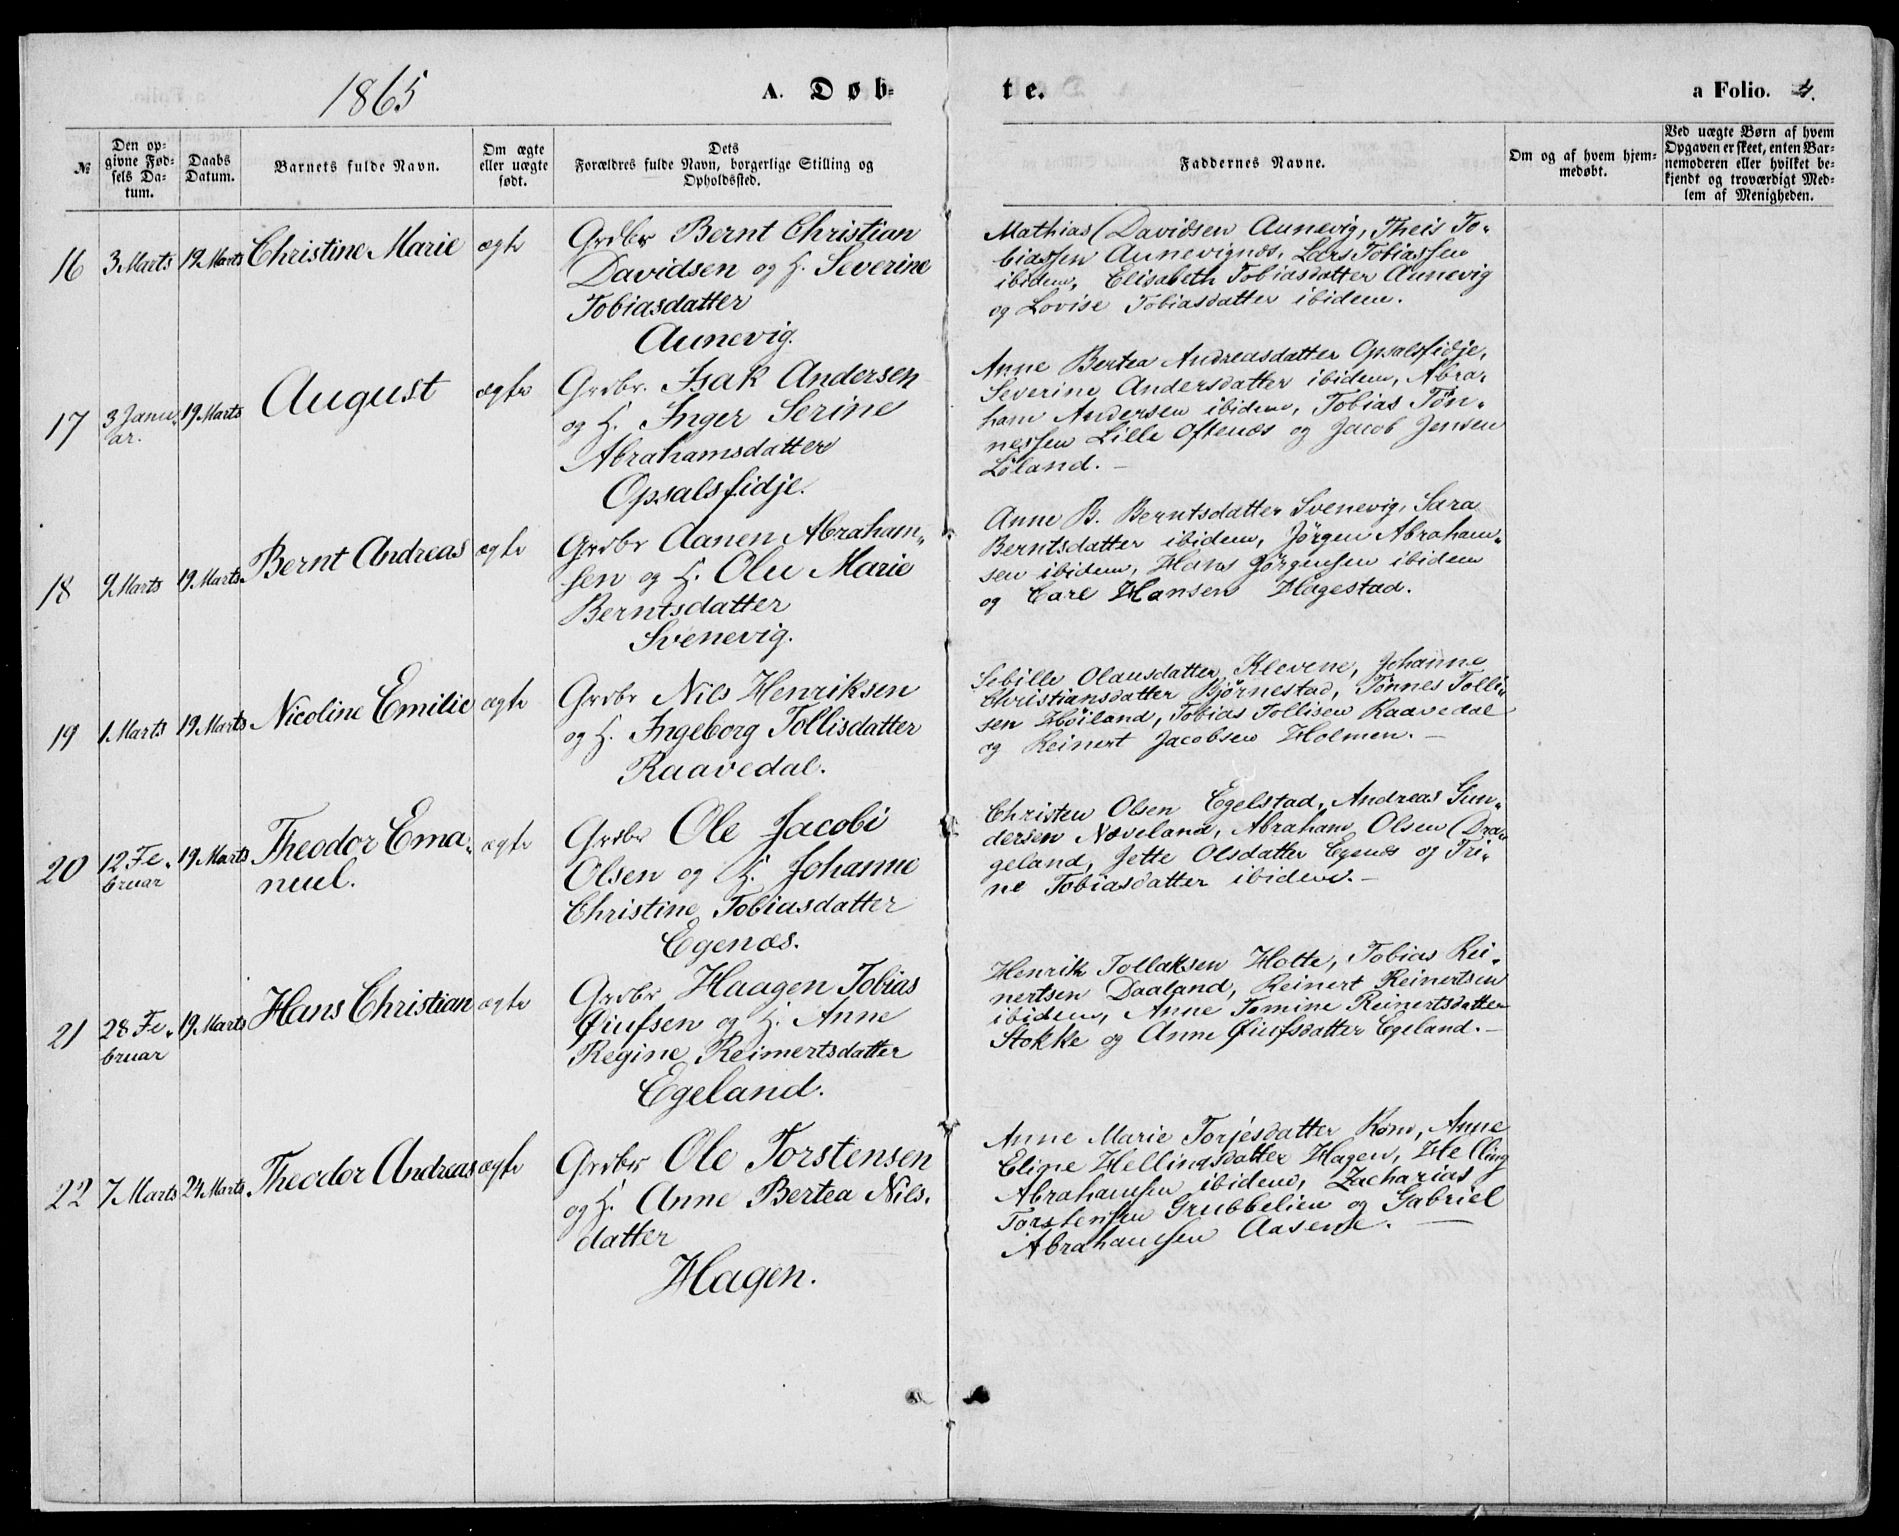 1865
A. Døb-
te.
a Folio. 4.
№
Den op-
givne Fød-
sels Da-
tum.
Daabs
Datum.
Barnets fulde Navn.
Om ægte
eller uægte
født.
Dets
Forældres fulde Navn, borgerlige Stilling og
Opholdssted.
Faddernes Navne.
Om og af hvem hjem-
medøbt.
Ved uægte Børn af hvem
Opgaven er skeet, enten Bar-
nemoderen eller hvilket be-
kjendt og troværdigt Med-
lem af Menigheden.
16
3 Marts
19 Marts
Christine Marie
ægte
Grdbr Bernt Christian
Davidsen og H. Severine
Tobiasdatter
Aunevig.
Mathias Davidsen Aunevig, Theis To-
biassen Aunevignæs, Lars Tobiassen
ibidem, Elisabeth Tobiasdatter Aunevig
og Lovise Tobiasdatter ibidem.
17
3 Janu-
ar.
19 Marts
August
ægte
Grdbr. Isak Andersen
og H. Inger Serine
Abrahamsdatter
Opsalsfidje.
Anne Bertea Andreasdatter Opsalsfidje,
Severine Andersdatter ibidem, Abra-
ham Andersen ibidem, Tobias Tøn-
nessen Lille Oftenæs og Jacob Jensen
Løland. —
18
9 Marts
19 Marts
Bernt Andreas
ægte
Grdbr Aanen Abraham-
sen og H. Olu Marie
Berntsdatter
Svenevig.
Anne B. Berntsdatter Svenevig, Sara
Berntsdatter ibidem, Jørgen Abraham-
sen ibidem, Hans Jørgensen ibidem
og Carl Hansen Hagestad.
19
1 Marts
19 Marts
Nicoline Emilie
ægte
Grdbr Nils Henriksen
og H. Ingeborg Tollisdatter
Raavedal.
Sibille Olausdatter Klevene, Johanne
Christiansdatter Bjørnestad, Tønnes Tolli-
sen Høiland, Tobias Tollisen Raavedal
og Reinert Jacobsen Holmen. —
20
12 Fe-
bruar
19 Marts
Theodor Ema-
nuel.
ægte
Grdbr Ole Jacobi
Olsen og H. Johanne
Christine Tobiasdatter
Egenæs.
Christen Olsen Egelstad, Andreas Gun-
dersen Næveland, Abraham Olsen Dra-
geland, Jette Olsdatter Egenæs og Tri-
ne Tobiasdatter ibidem. —
21
28 Fe-
bruar
19 Marts
Hans Christian
ægte
Grdbr Haagen Tobias
Øiufsen og H. Anne
Regine Reimertsdatter
Egeland.
Henrik Tollaksen Holte, Tobias Rei-
nertsen Daaland, Reinert Reinertsen
ibidem, Anne Tomine Reinertsdatter
Stokke og Anne Øiufsdatter Egeland. —
22
7 Marts
24 Marts
Theodor Andreas
ægte
Grdbr Ole Torstensen
og H. Anne Bertea Nils-
datter
Hagen.
Anne Marie Torjesdatter Køm, Anne
Eline Hellingsdatter Hagen, Helling
Abrahamsen ibidem, Zacharias
Torstensen Grubbelien og Gabriel
Abrahamsen Aasene. —